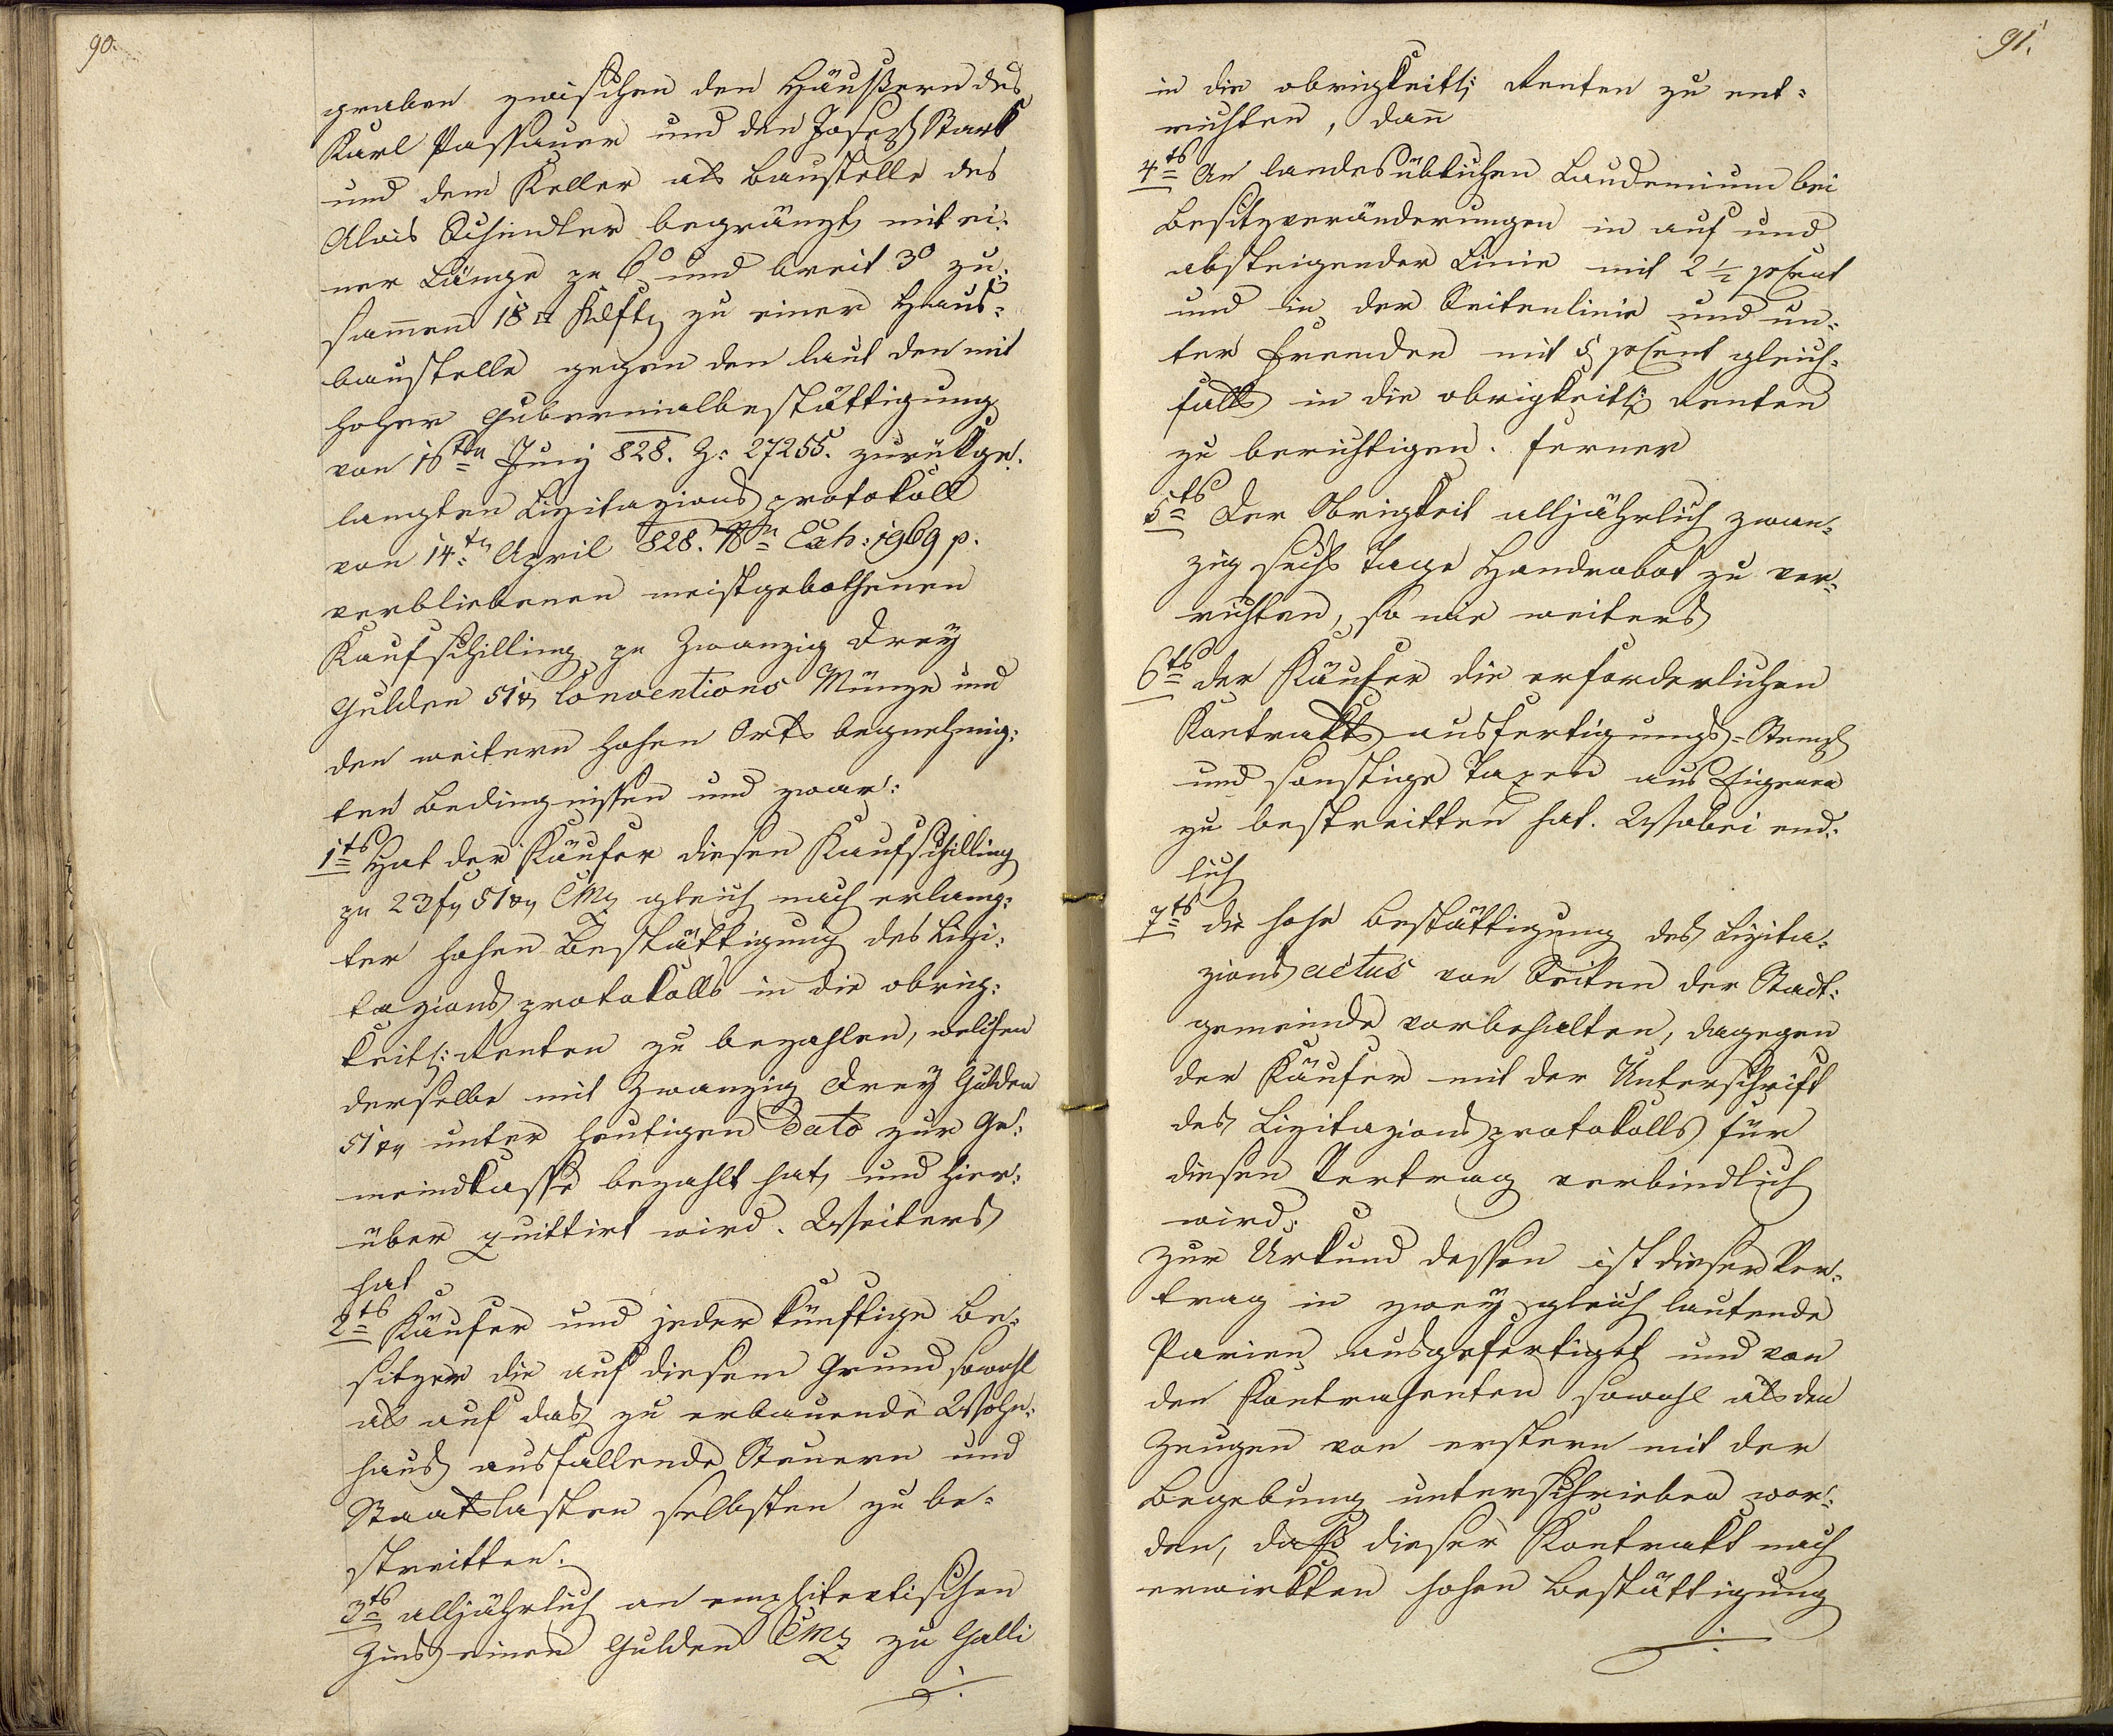 90.
graben zwischen den Häußern des
Karl Passauer und den Joseph Stark
und dem Keller als Baustelle des
Alois Schindler begränzt mit ei:
ner Länge zu 6° und breit 3° zu:
sam̅en 18 □ Klft zu einer Haus:
baustelle gegen den laut den mit
hoher Gubernialbestättigung
von 16ten Juny 828. Z: 27255. zurükge:
langten Lizitazions protokoll
von 14ten April 828. Exh: 1969 p.
verbliebenen meistgebothenen
Kaufschilling zu Zwanzig Drey
Gulden 51 x Conventions Münze und
den weitern hohen Orts begnehmig:
ten Bedingnissen und zwar:
1ts Hat der Käufer diesen Kaufschilling
zu 23 f 51 x CMz gleich nach erlang:
ter hohen Bestättigung des Lizi:
tazions protokolls in die obrig:
keitl: Renten zu bezahlen, welchen
derselbe mit Zwanzig Drey Gulden
51 x unter heutigen Dato zur Ge:
meindkasse bezahlt hat, und hier:
über quittirt wird. Weiters
hat
2ts Käufer und jeder künftige Be:
sitzer die auf diesem Grund sowohl
als auf das zu erbauende Wohn:
haus ausfallende Steuern und
Staatslasten selbsten zu be:
streitten.
3ts alljährlich an emphiteutischen
Zins einen Gulden CMz zu Galli
./.
91.
in die obrigkeitl: Renten zu ent:
richten, dan̅
4ts An landesüblichen Laudemium bei
Besitzveränderungen in auf und
absteigender Linie mit 2 1/2 pCent
und in der Seitenlinie und un:
ter Fremden mit 5 pCent gleich:
falls in die obrigkeitl: Renten
zu berichtigen. Ferner
5ts Der Obrigkeit alljährlich zwan:
zig sechs Tage Handrobot zu ver:
richten, so wie weiters
6ts der Käufer die erforderlichen
Kontrakts ausfertigungs=Stempl
und sonstige Taxen aus Eigenen
zu bestreitten hat. Wobei end:
lich
7ts die hohe Bestättigung des Lizita:
zions actus von Seiten der Stadt:
gemeinde vorbehalten, dagegen
der Käufer mit der Unterschrift
des Lizitazions protokolls für
diesen Vertrag verbindlich
wird.
Zur Urkund dessen ist dieser Ver:
trag in zwey gleich lautende
Parien ausgefertiget und von
den Kontrahenten sowohl als den
Zeugen von erstern mit der
Begebung unterschrieben wor:
den, daß dieser Kontrakt nach
erwirkten hohen Bestättigung
./.